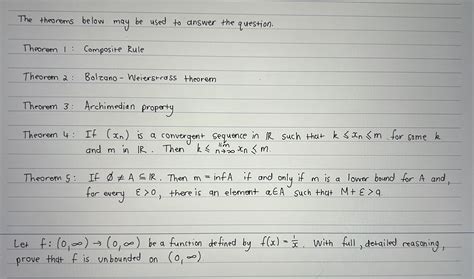 The theorems below may be used to answer the question.
Theorem 1 : Composite Rule
Theorem 2 : Bolzano - Weierstrass theorem
Theorem 3 : Archimedian property
Theorem 4 : If (xₙ) is a convergent sequence in ℝ such that k ≤ xₙ ≤ m for some k
and m in ℝ. Then k ≤ lim n→∞ xₙ ≤ m.
Theorem 5 : If ∅ ≠ A ⊆ ℝ. Then m = inf A if and only if m is a lower bound for A and,
for every ε > 0, there is an element a ∈ A such that M + ε > a.
Let f : (0,∞) → (0,∞) be a function defined by f(x) = 1/x. With full, detailed reasoning,
prove that f is unbounded on (0,∞)